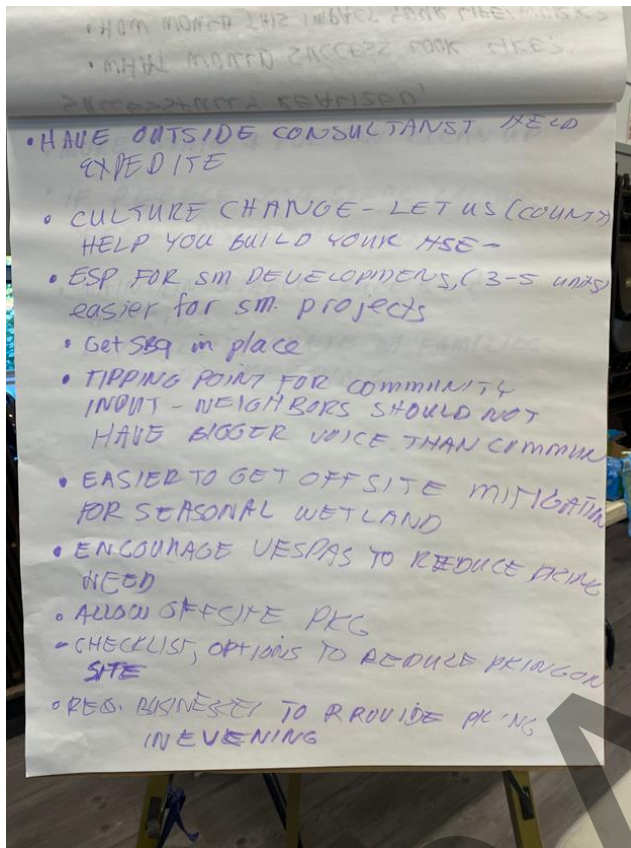 SUCCESSFULLY REALIZED?
• HAVE OUTSIDE CONSULTANST HELD
EXPEDITE
• CULTURE CHANGE - LET US (COUNTY)
HELP YOU BUILD YOUR HSE -
• ESP FOR SM DEVELOPMENS, (3-5 UNITS)
easier for sm. projects
• Get SB9 in place
• TIPPING POINT FOR COMMUNITY
INPUT - NEIGHBORS SHOULD NOT
HAVE BIGGER VOICE THAN COMMUN
• EASIER TO GET OFFSITE MITIGATION
FOR SEASONAL WETLAND
• ENCOURAGE VESPAS TO REDUCE PKING
NEED
• ALLOW OFFSITE PKG
- CHECKLIST, OPTIONS TO REDUCE PKING ON
SITE
• REQ. BUSINESSES TO PROVIDE PKING
IN EVENING